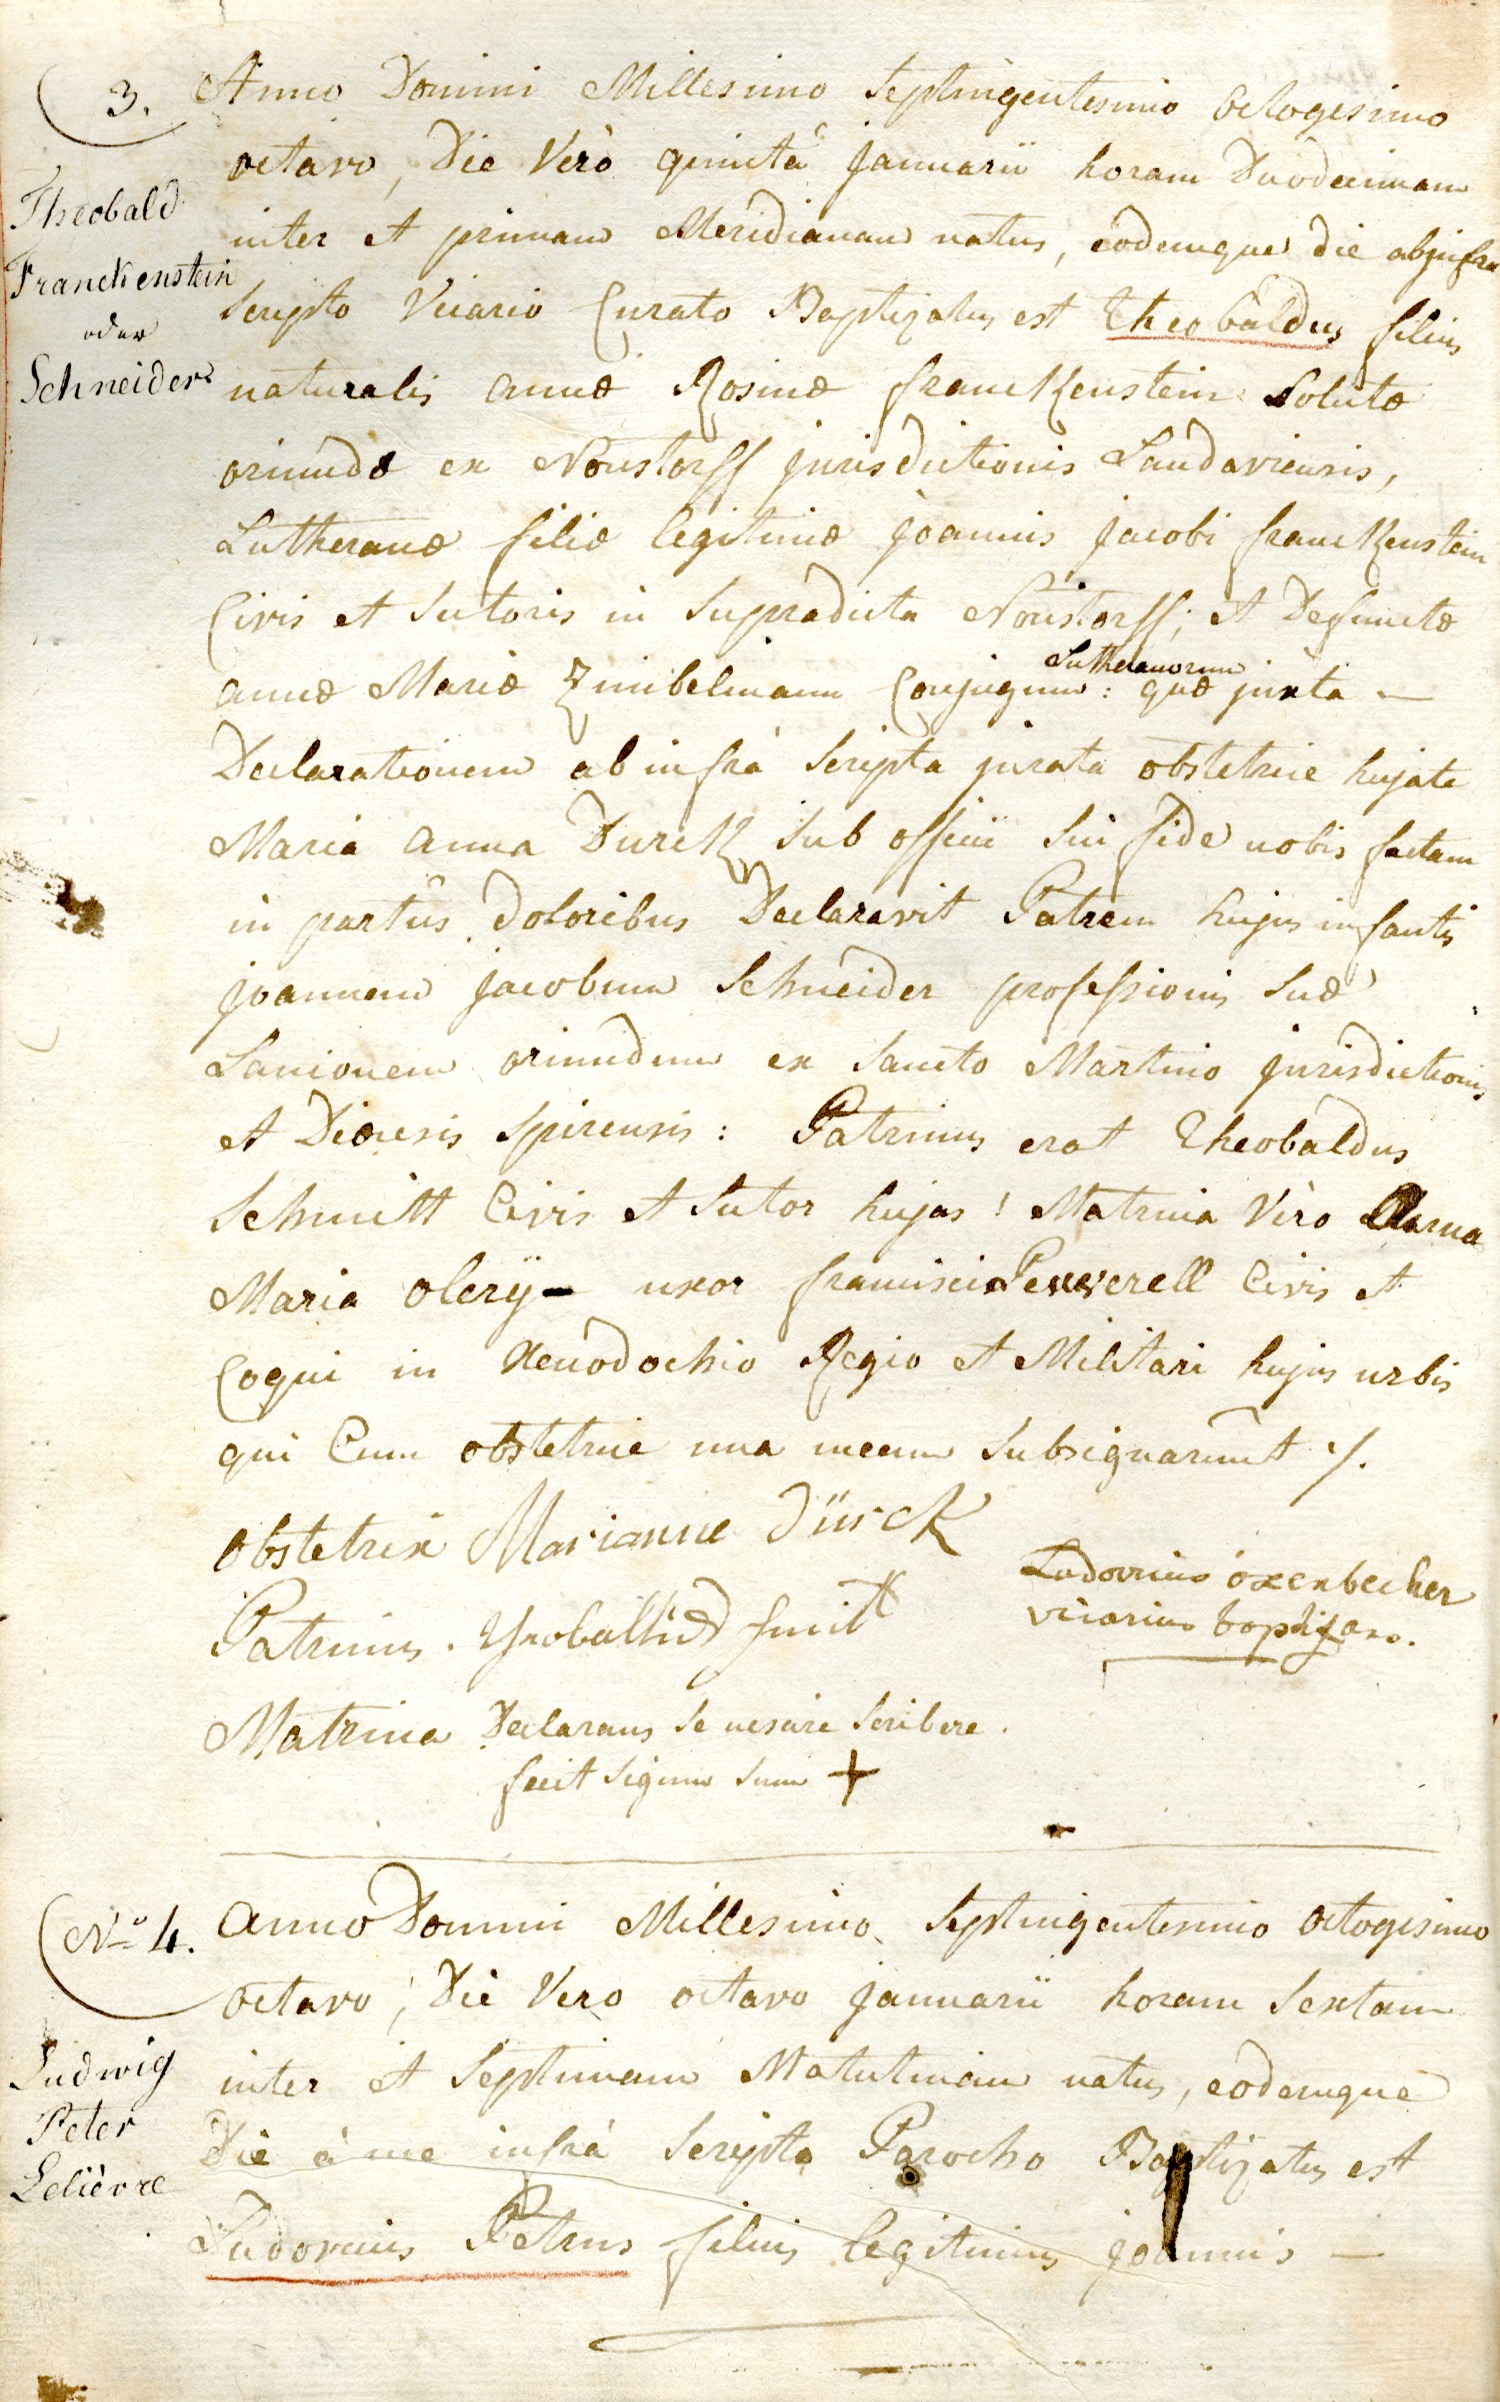 3.
Theobald
Franckenstein
oder
Schneider
Anno Domini Millesimo Septingentesimo octogesimo
octavo, Die Verò quintâ Januarii horam Duodecimam
inter et primam Meridianam natus, eodemque die ab infra
Scripto Vicario Curato Baptizatus est Theobaldus filius
naturalis annæ Rosinæ franckenstein Solutæ
oriundæ ex Noustorff jurisdictionis Landaviensis,
Lutheranæ filiæ legitimæ joannis jacobi franckenstein
Civis et Sutoris in Supradicta Noustorff; et Defunctæ
Lutheranorum
annæ Mariæ Zinibelmann Conjugum: quæ juxta —
Declarationem ab infrà Scripta jurata obstetrice hujate
Maria anna Durck Sub officii Sui fide nobis factam
in partûs doloribus Declaravit Patrem hujus infantis
joannem jacobum Schneider professionis Suæ
Lanionem oriundum ex Sancto Martino jurisdictionis
et Diœcesis Spirensis: Patrinus erat Theobaldus
Schmitt Civis et Sutor hujas! Matrina Vèro Anna
Maria olery - uxor francisci Peuverell Civis et
Coqui in Xenodochio Regio et Militari hujus urbis
qui Cum obstetrice una mecum Subsignarunt ./.
obstetrix Marianne Dürck
Patrinus. Theobaldus Smitt
Ludovicus oxenbecher
vicarius baptizans.
Matrina Declarans Se nescire Scribere.
fecit Signum Suum +
No 4.
Ludwig
Peter
Lelièvre
Anno Domini Millesimo Septingentesimo octogesimo
octavo, Die Vero octavo Januarii horam Sextam
inter et Septimam Matutinam natus, eodemque
Die à me infrà Scripto Parocho Baptizatus est
Ludovicus Petrus filius legitimus joannis —